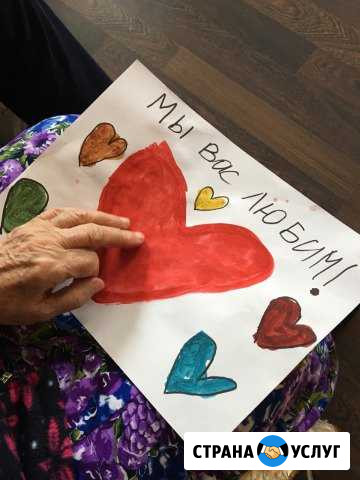 Мы вас ЛЮБИМ!
СТРАНА УСЛУГ